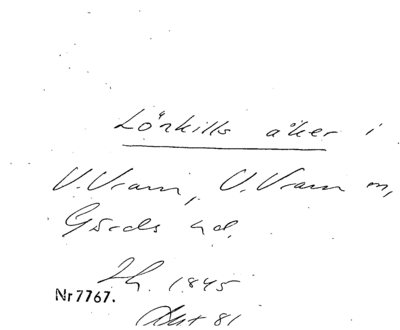 Lönkills åker i
V. Vram, V. Vram sn,
Gärds hd.
Lh. 1845
Nr 7767.
Akt 81